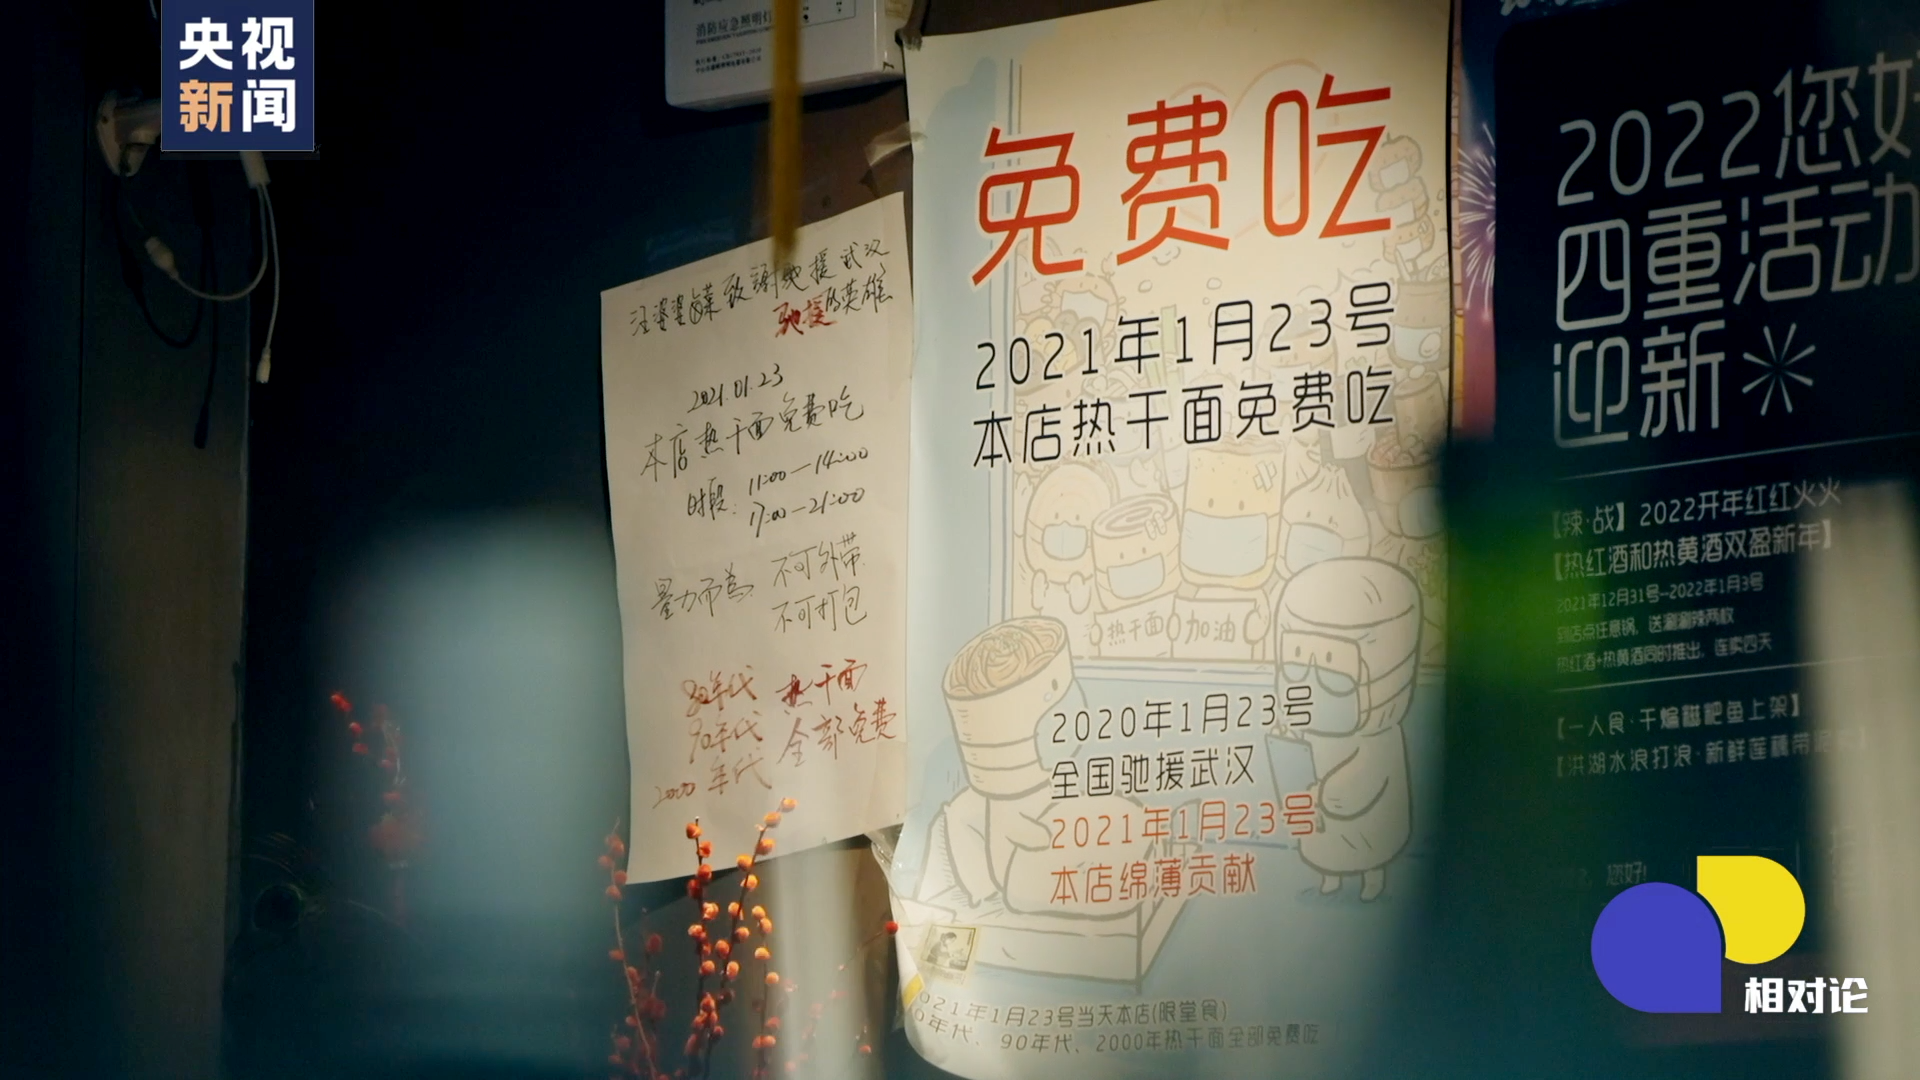 央视
新闻
消防应急照明灯
汪婆婆卤菜致謝驰援武汉
驰援的英雄
2021.01.23
本店热干面免费吃
时段: 11:00—14:00
17:00—21:00
量力而為 不可外带
不可打包
80年代 热干面
90年代 全部免费
2000年代
免费吃
2021年1月23号
本店热干面免费吃
热干面 加油
2020年1月23号
全国驰援武汉
2021年1月23号
本店绵薄贡献
021年1月23号当天本店(限堂食)
0年代、90年代、2000年热干面全部免费吃
2022您好
四重活动
迎新
【辣·战】2022开年红红火火
【热红酒和热黄酒双盈新年】
2021年12月31号-2022年1月3号
到店点任意锅,送涮涮辣两枚
热红酒+热黄酒同时推出,连卖四天
【一人食·干煸糍粑鱼上架】
【洪湖水浪打浪·新鲜莲藕带
您好!
相对论